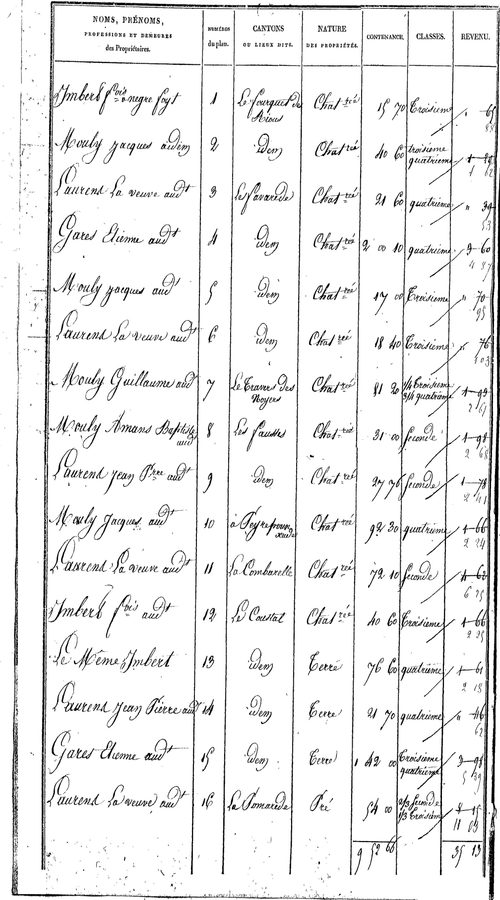 NOMS, PRÉNOMS, PROFESSIONS ET DEMEURES des Propriétaires. NUMÉROS du plan. CANTONS OU LIEUX DITS. NATURE DES PROPRIÉTÉS. CONTENANCE. CLASSES. REVENU.
Imbert fçois 1 Le fourques des Chat.rée 15 70 Troisieme " 65
88
Mouly jacques 2 idem Chat.rée 40 60 troisieme quatrieme 1 62
Laurens La veuve audt 3 Les favarede Chat.rée 21 60 quatrieme " 39
53
Gares Etienne audt 4 idem Chat.rée 2 00 10 quatrieme 3 60
4 87
Mouly jacques audt 5 idem Chat.rée 17 00 Troisieme " 70
95
Laurens La veuve audt 6 idem Chat.rée 18 40 Troisieme " 76
1 03
Mouly Guillaume audt 7 Le Travers des Noyers Chat.rée 81 20 1/4 Troisieme 3/4 quatrieme
Mouly Amans Baptiste audt 8 Les fausses Chat.rée 31 00 seconde 1 98
2 68
Laurens jean Pre audt 9 idem Chat.rée 27 76 seconde 1 78
2 41
Mouly jacques audt 10 Chat.rée 92 30 quatrieme 1 66
2 24
Laurens La veuve audt 11 La Combarelle Chat.rée 72 10 seconde 4 62
6 25
Imbert fçois audt 12 Le Coustal Chat.rée 40 60 Troisieme 1 66
2 25
Le Même Imbert 13 idem Terre 76 60 quatrième 1 61
2 18
Laurens jean Pierre audt 14 idem Terre 21 70 quatrieme " 46
62
Gares Etienne audt 15 idem Terre 1 42 00 Troisieme quatrieme 3 98
5 39
Laurens La veuve audt 16 La Pomarede Pré 54 00 2/3 seconde 1/3 Troisieme 8 15
11 03
9 52 66 35 13